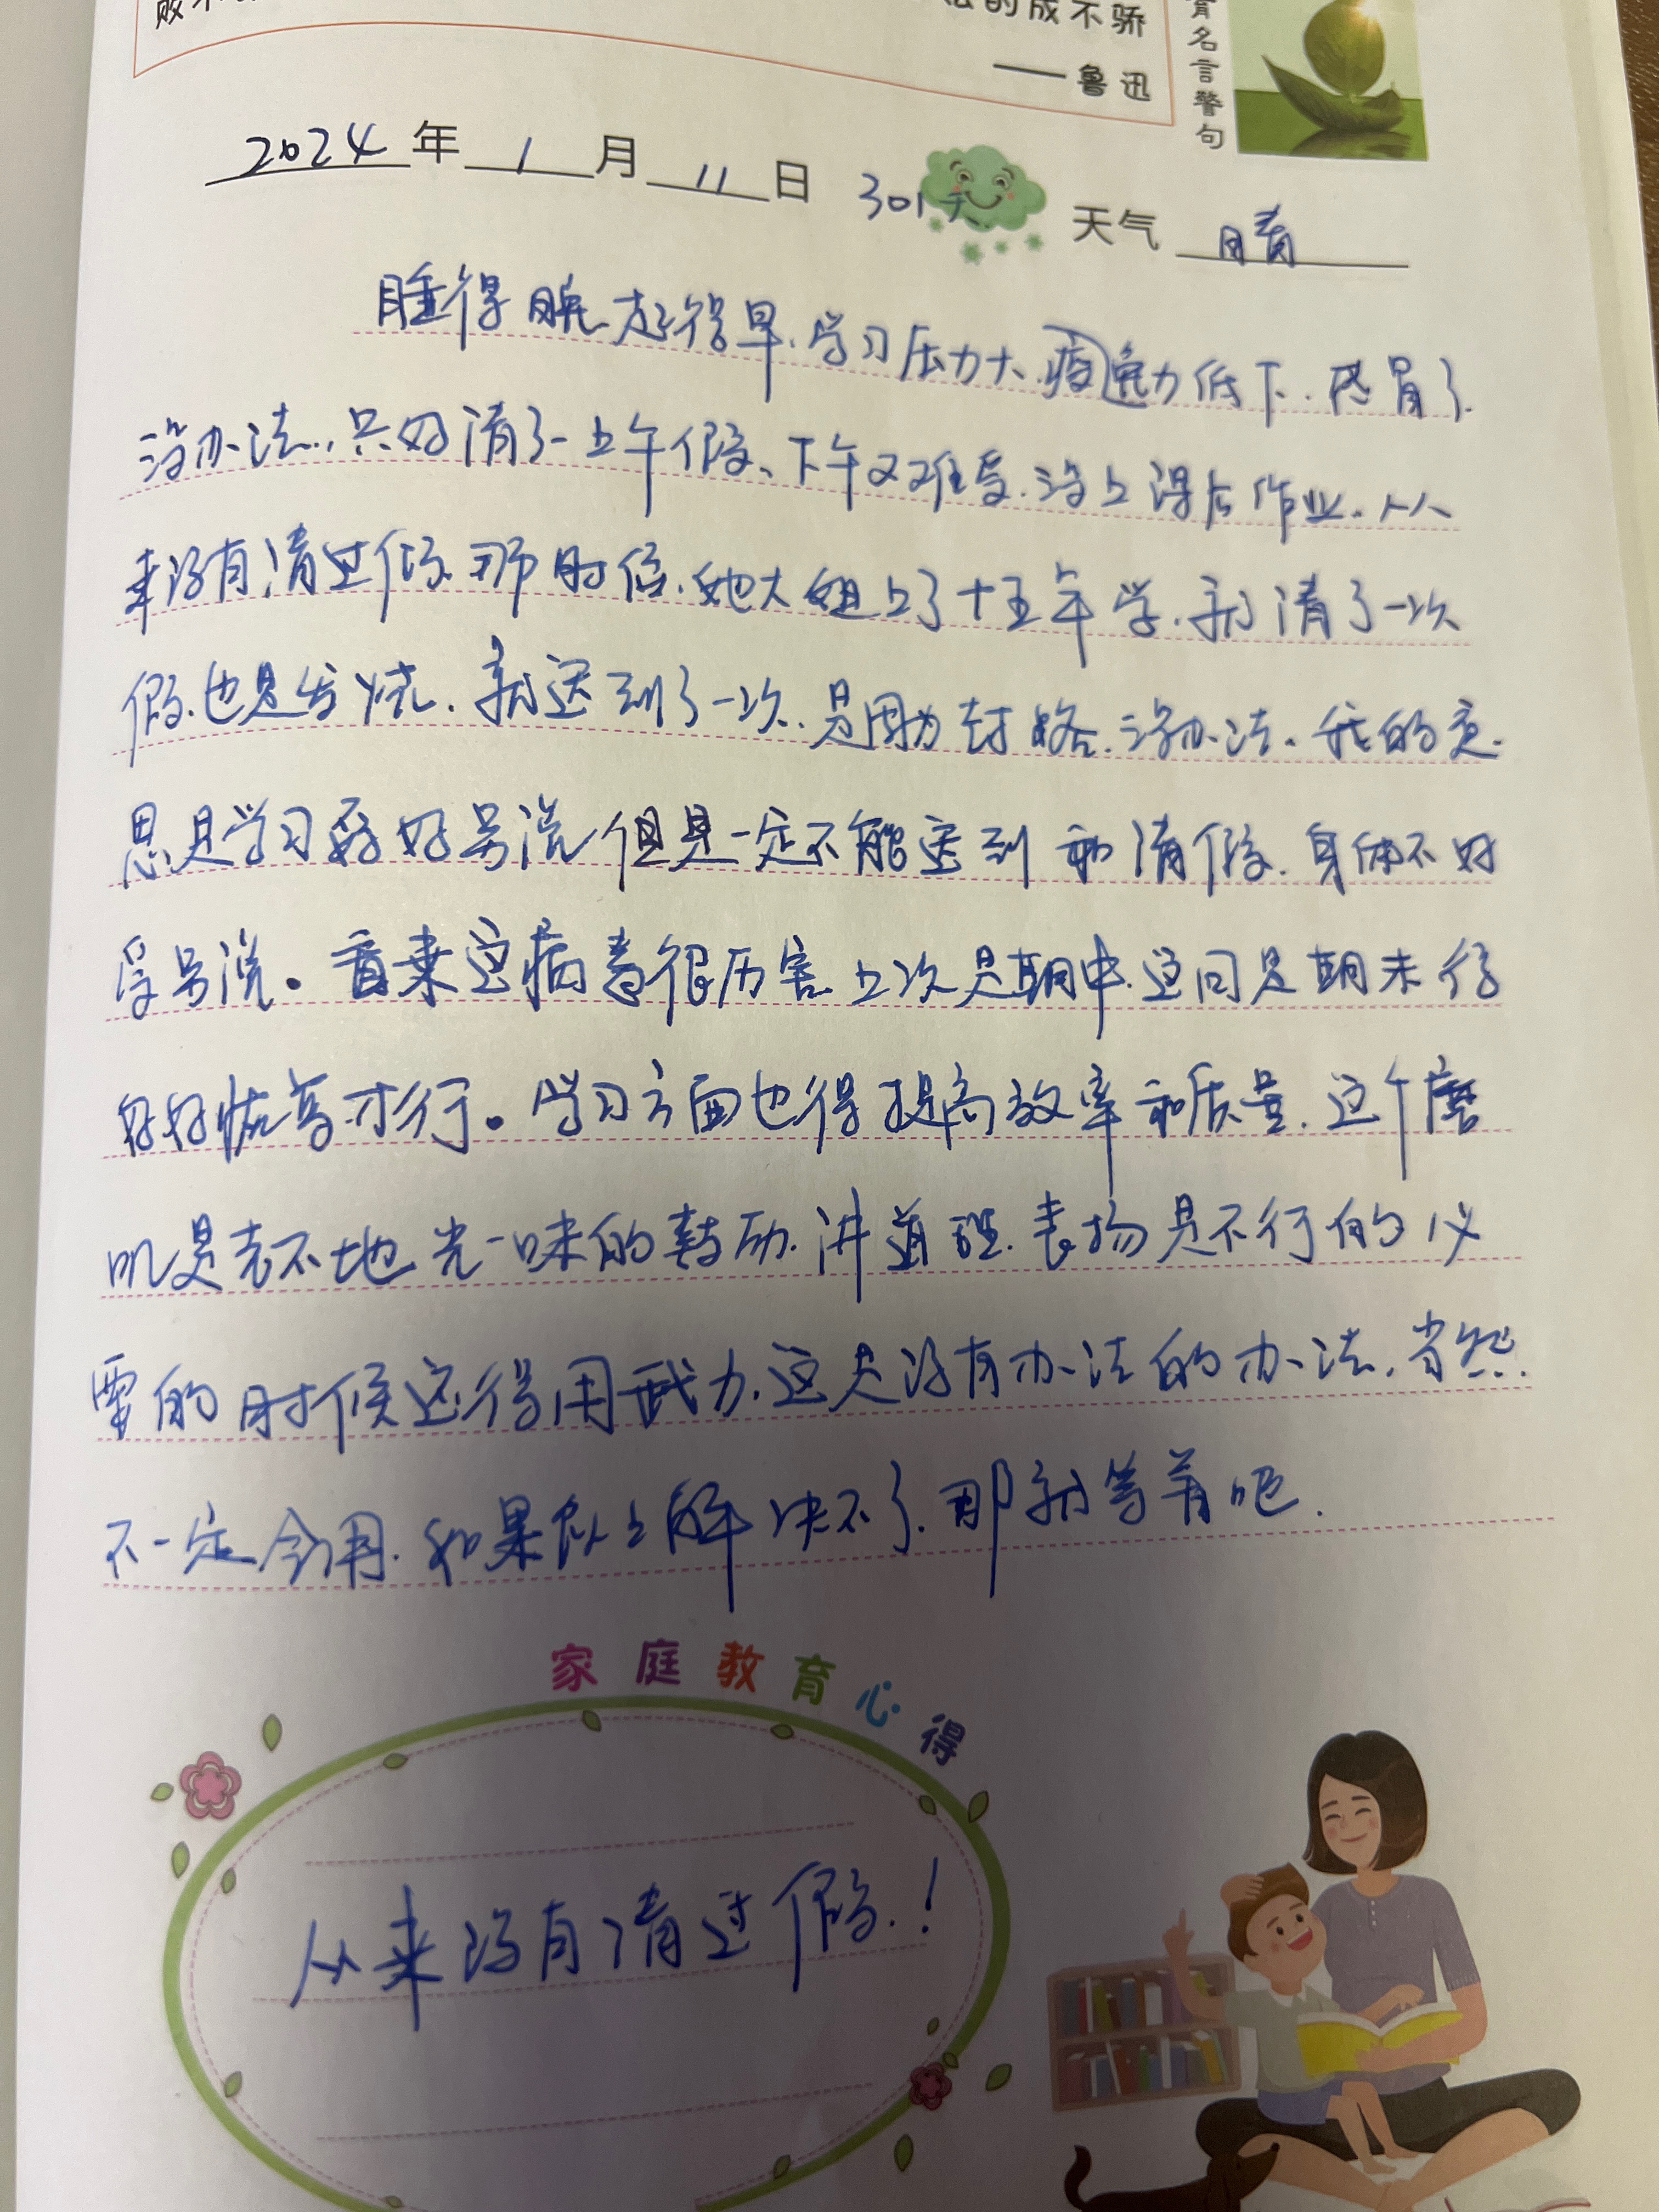 的成不骄
—— 鲁迅
育名言警句
2024 年 1 月 11 日 301天 天气 晴
睡得晚.起得早.学习压力大.免疫力低下.感冒了.
没办法..只好请了一上午假、下午又难受.没上课后作业.从
来没有请过假.那时候.她大姐上了十五年学.就请了一次
假.也是发烧.就迟到了一次.是因为封路.没办法。我的意.
思是学习好好另说但是一定不能迟到和请假.身体不好
另说。看来这病毒很厉害.上次是期中.这回是期末得
好好休养才行。学习方面也得提高效率和质量.这个磨
叽是去不地.光一味的鼓励.讲道理.表扬是不行的必
要的时候还得用武力.这是没有办法的办法.当然.
不一定会用.如果队上解决不了.那就等着吧.
家庭教育心得
从来没有请过假.!